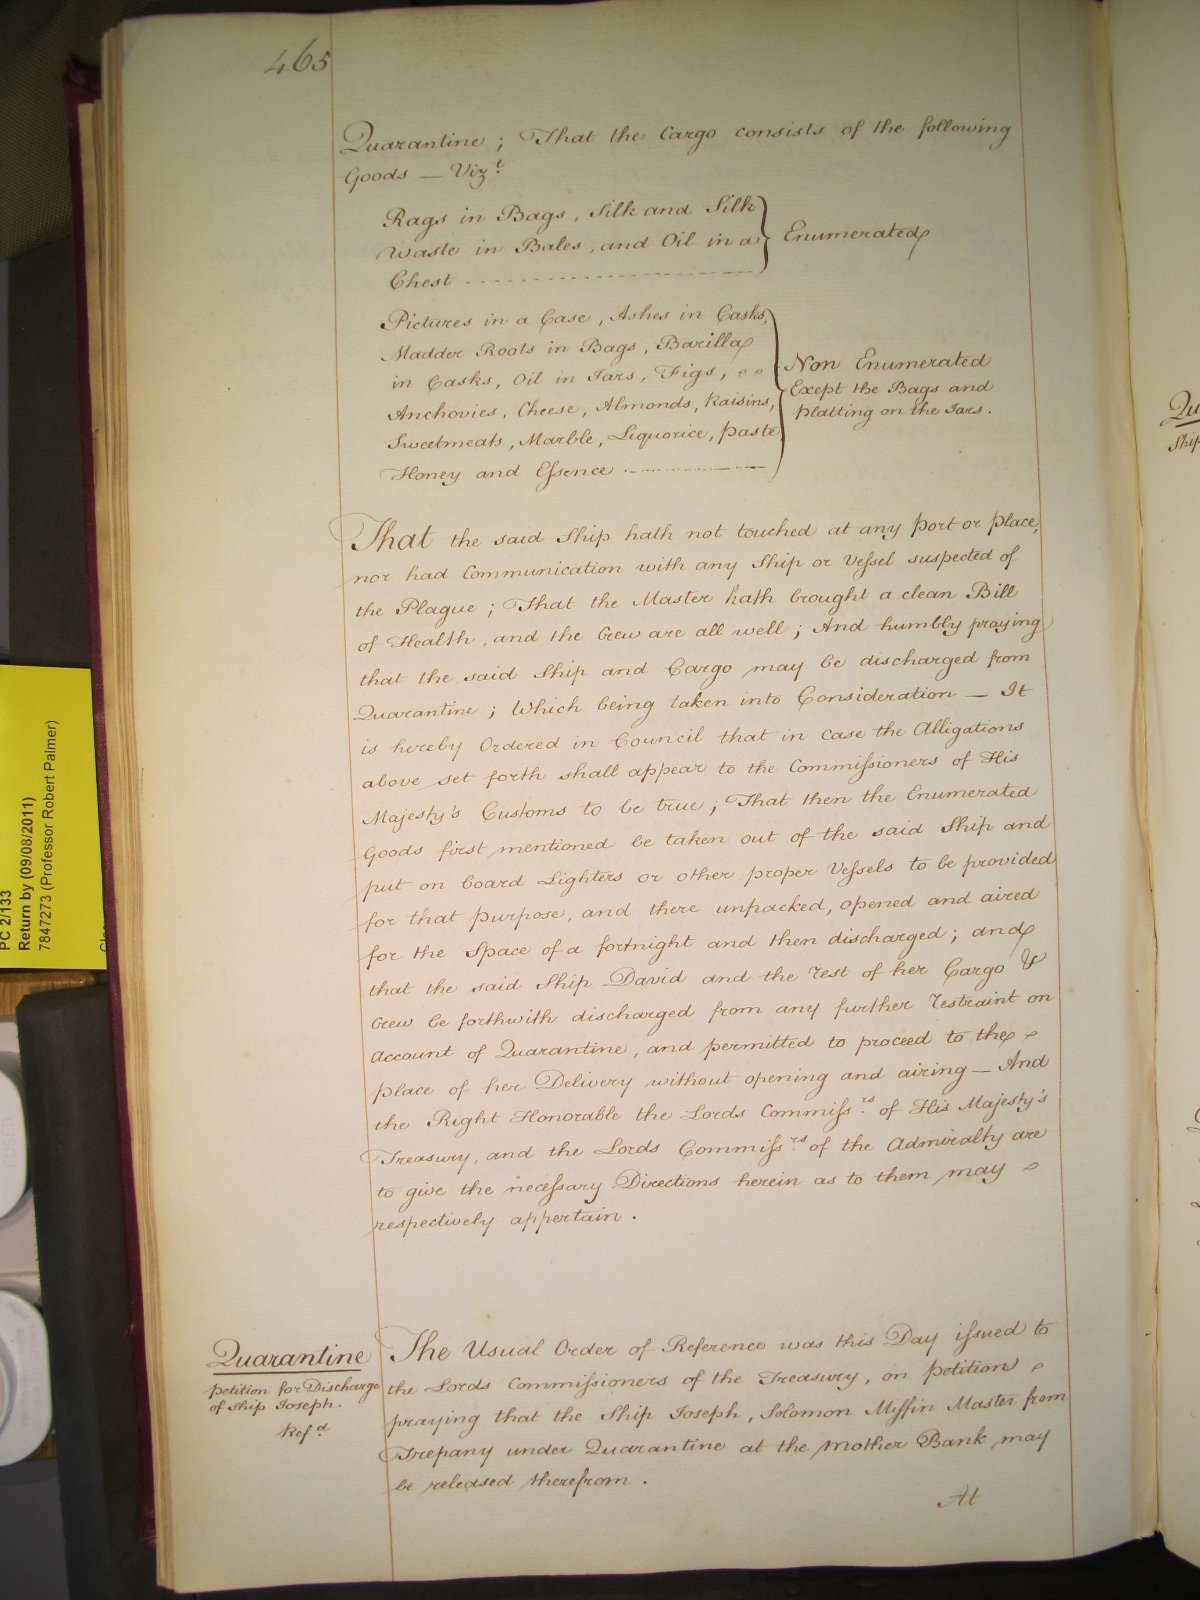 465
Quarantine ; That the Cargo consists of the following
Goods — Vizt.
Rags in Bags, Silk and Silk
Waste in Bales, and Oil in a
Chest
Enumerated
Pictures in a Case, Ashes in Casks,
Madder Roots in Bags, Barilla
in Casks, Oil in Jars, Figs,
Anchovies, Cheese, Almonds, Raisins,
Sweetmeats, Marble, Liquorice, paste
Honey and Essence
Non Enumerated
Except the Bags and
platting on the Jars.
That the said Ship hath not touched at any port or place,
nor had Communication with any Ship or Vessel suspected of
the Plague ; That the Master hath brought a clean Bill
of Health, and the Crew are all well ; And humbly praying
that the said Ship and Cargo may be discharged from
Quarantine ; Which being taken into Consideration — It
is hereby Ordered in Council that in case the Alligations
above set forth shall appear to the Commissioners of His
Majesty's Customs to be true ; That then the Enumerated
Goods first mentioned be taken out of the said Ship and
put on board Lighters or other proper Vessels to be provided
for that purpose, and there unpacked, opened and aired
for the Space of a fortnight and then discharged ; and
that the said Ship David and the rest of her Cargo &
Crew be forthwith discharged from any further restraint on
account of Quarantine, and permitted to proceed to the
place of her Delivery without opening and airing — And
the Right Honorable the Lords Commissrs. of His Majesty's
Treasury, and the Lords Commissrs. of the Admiralty are
to give the necessary Directions herein as to them may
respectively appertain.
Quarantine
petition for Discharge
of Ship Joseph.
Refd
The Usual Order of Reference was this Day issued to
the Lords Commissioners of the Treasury, on petition
praying that the Ship Joseph, Solomon Miffin Master from
Trepany under Quarantine at the Mother Bank may
be released therefrom.
At
PC 2/133
Return by (09/08/2011)
7847273 (Professor Robert Palmer)
Qu
Ship